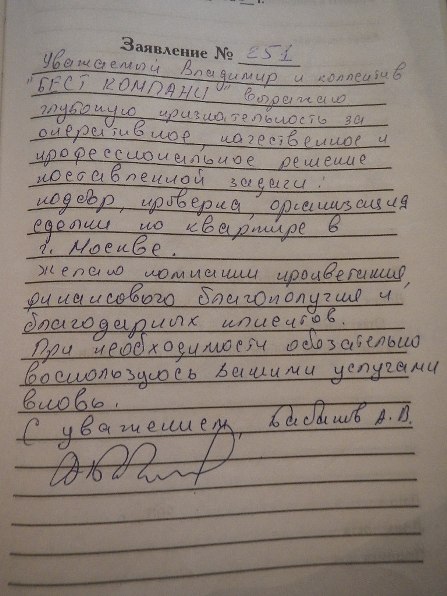 Заявление № 251
Уважаемый Владимир и коллектив
"БЕСТ КОМПАНИ" выражаю
глубокую признательность за
оперативное, качественное и
профессиональное решение
поставленной задачи:
подбор, проверка, организация
сделки по квартире в
г. Москве.
Желаю компании процветания,
финансового благополучия и
благодарных клиентов.
При необходимости обязательно
воспользуюсь Вашими услугами
вновь.
С уважением, Бабашов А.В.